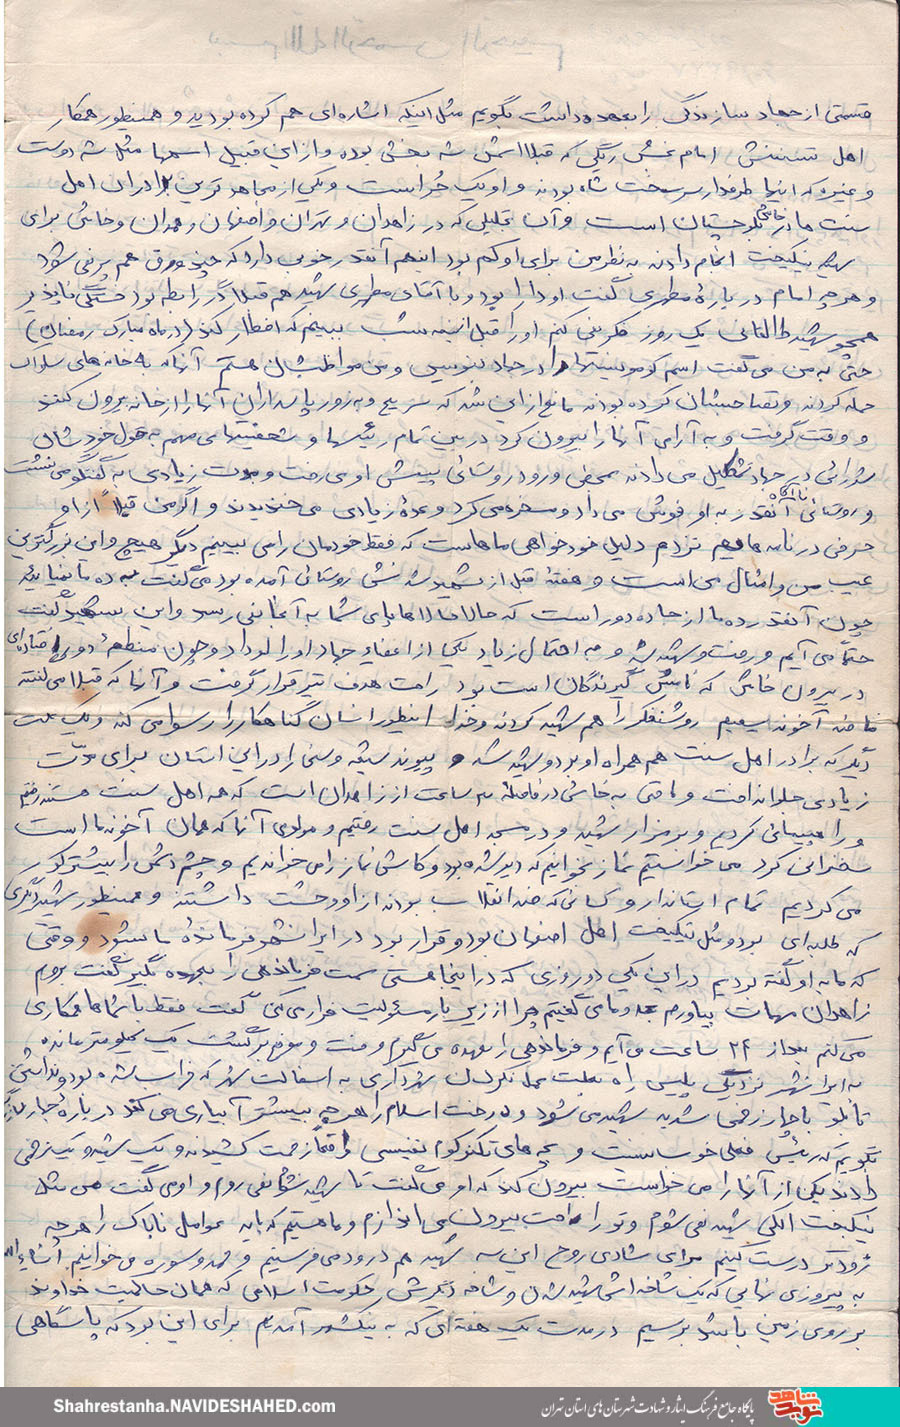 قسمتی از جهاد سازندگی را بعهده داشت بگویم مثل اینکه اشاره‌ای هم کرده بودید و همینطور همکار
اهل تسننش امام بخش ریگی که قبلا اسمش شه بخش بوده و از این قبیل اسمها مثل شه دوست
و غیره که اینها طرفدار سرسخت شاه بودند و او یک حُر است و یکی از مجاهدترین برادران اهل
سنت ما در خاش بلوچستان است و آن تجلیلی که در زاهدان و تهران و اصفهان و همدان و خاش برای
شهید نیکبخت انجام دادند به نظر من برای او کم بود اینهم آنقدر خوبی دارد که چند ورق هم پر نمی شود
و هر چه امام درباره مطهری گفت او دارا بود و با آقای مطهری شهید هم قبلاً در رابطه بود خستگی ناپذیر
همچو شهید طالقانی یک روز فکر نمی کنم او را قبل از نیمه شب ببینم که افطار کند (در ماه مبارک رمضان)
حتی به من می گفت اسم کمونیستها را در جهاد بنویس و من مواظبشان هستم آنان به خانه های
حمله کردند و تصاحبشان کرده بودند مانع از این شد که سریع و به زور پاسداران آنها را از خانه بیرون کنند
و وقت گرفت و به آرامی آنها را بیرون کرد در بین تمام رئیسها و شخصیتهای مهم به قول خودشان
شورائی در جهاد تشکیل می دادند بمحض ورود روستائی پیشش او می رفت و مدت زیادی به گفتگو می نشست
و روستائی ناآگاه آنقدر به او فحش می داد و مسخره می کرد و عده زیادی می خندیدند و اگر من قبلاً از او
حرفی در نامه هایم نزدم دلیل خودخواهی ماهاست که فقط خودمان را می بینیم دیگر هیچ و این بزرگترین
عیب من و امثال من است و هفته قبل از شهید شدنش روستائی آمده بود می گفت به ده ما نمیائید
چون آنقدر ده ما از جاده دور است که حالا حالاها پای شما به آنجا نمی رسد و این شهید گفت
حتماً می آیم و رفت و شهید شد و به احتمال زیاد یکی از اعضاء جهاد او را لو داد و چون منطقه دور افتاده‌ای
در بیرون خاش که گیرندگان است بود راحت هدف تیر قرار گرفت و آنها که قبلا می گفتند
ما ضد آخوند هستیم روشنفکر را هم شهید کردند و خدا اینطور انسان گناهکار را رسوا می کند و یک علت
دیگر که برادر اهل سنت هم همراه او بود و شهید شد و پیوند شیعه و سنی را در این استان برای مدّت
زیادی جلو انداخت و ما وقتی به خاش در فاصلهٔ سه ساعت از زاهدان است که همه اهل سنت هستند رفتیم
و راهپیمائی کردیم و بر مزار شهید و در مسجد اهل سنت رفتیم و مولوی آنها که همان آخوند ما است
سخنرانی کرد می خواستیم نماز بخوانیم که دیر شده بود و کاش نماز را می خواندیم و چشم دشمن را بیشتر کور
می کردیم تمام استاندار و کسانی که ضد انقلاب بودند از او وحشت داشتند و همینطور شهید دیگری
که طلبه‌ای بود و مثل نیکبخت اهل اصفهان بود و قرار بود در ایرانشهر فرماندهٔ ما بشود و وقتی
که ما به او گفته بودیم در این یکی دو روزی که در اینجا هستی سمت فرماندهی را بعهده بگیر گفت بروم
زاهدان مهمات بیاورم و ما می گفتیم چرا از زیر بار مسئولیت فرار می کنی گفت فقط با شماها همکاری
می کنم بعد از ۲۴ ساعت می آیم و فرماندهی را بعهده می گیرم و رفت و موقع برگشت یک کیلومتر مانده
به ایرانشهر نزدیکی پلیس راه بعلت عمل نکردن شهرداری به اسفالت شهر که خراب شده بود و نداشتن
تابلو ناچار زخمی شدید شهید می شود و درخت اسلام را هر چه بیشتر آبیاری می کند درباره جهاد بازگو
بگویم که رئیس فعلی خوب نیست و بچه های نفیسی واقعاً زحمت کشیدند و یک شهید و یک زخمی
دادند یکی از آنها را می خواست بیرون کند که او می گفت تا شهید نشوم نمی روم و او می گفت من مثل
نیکبخت الکی شهید نمی شوم و تو را راحت بیرون می اندازم و ما هستیم که باید عوامل ناپاک را هر چه
زودتر درست کنیم برای شادی روح این سه شهید هم درود می فرستیم و حمد و سوره می خوانیم انشاءالله
به پیروزی نهایی که یک شاخه اش شهید شدن و شاخه دیگرش حکومت اسلامی که همان حاکمیت خداوند
بر روی زمین باشد برسیم در مدت یک هفته‌ای که به نیکشهر آمدیم برای این بود که پاسگاهی
Shahrestanha.NAVIDESHAHED.com
پایگاه جامع فرهنگ ایثار و شهادت شهرستان های استان تهران
نوید شاهد